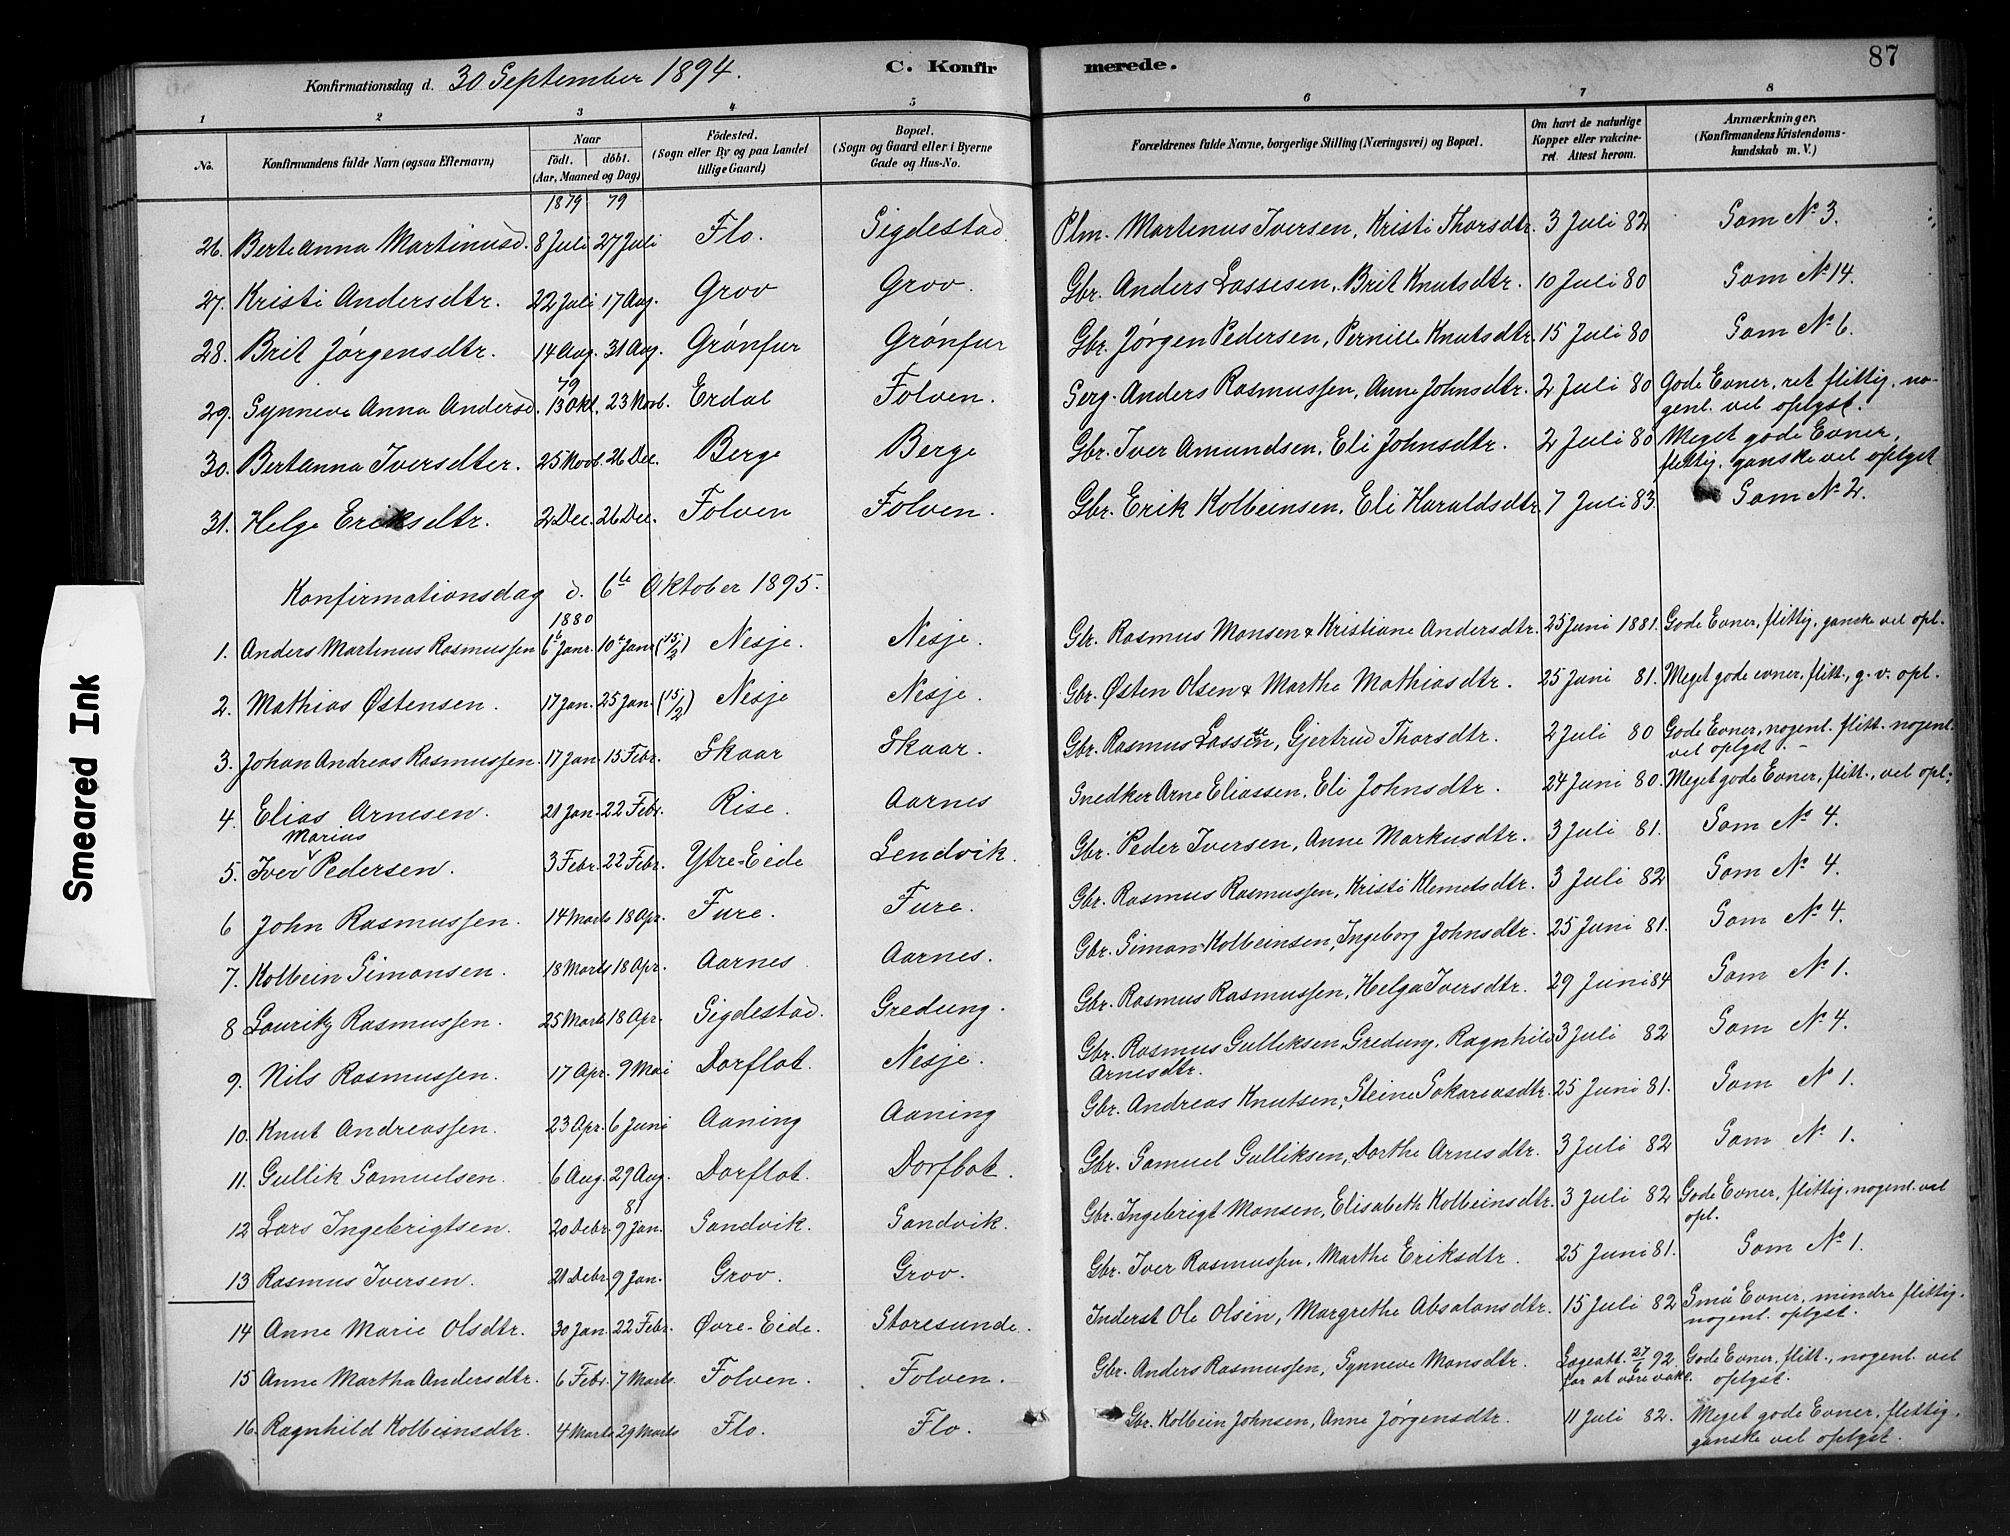 87
Konfirmationsdag d. 30 September 1894. C. Konfirmerede.
1 2 3 4 5 6 7 8
No. Konfirmandens fulde Navn (ogsaa Efternavn) Naar født. døbt. (Aar, Maaned og Dag) Fødested. (Sogn eller By og paa Landet tillige Gaard) Bopæl. (Sogn og Gaard eller i Byerne Gade og Hus-No.) Forældrenes fulde Navne, borgerlige Stilling (Næringsvei) og Bopæl. Om havt de naturlige Kopper eller vakcineret. Attest herom. Anmærkninger. (Konfirmandens Kristendomskundskab m. V.)
1879 79
26. Berte Anna Martinusd. 8 Juli 27 Juli Flo. Sigdestad. Plm. Martinus Iversen, Kristi Thorsdtr. 3 Juli 82 Som No 3.
27. Kristi Andersdtr. 22 Juli 17 Aug. Grov Grov. Gbr. Anders Lassesen, Brit Knutsdtr. 10 Juli 80 Som No 14.
28. Brit Jørgensdtr. 14 Aug. 31 Aug. Grønfur Grønfur Gbr. Jørgen Pedersen, Pernille Knutsdtr. 15 Juli 80 Som No 6.
79
29. Synneve Anna Andersd. 13 Okt. 23 Novb. Erdal Folven. Serg. Anders Rasmussen, Anne Johnsdtr. 2 Juli 80 Gode Evner, ret flittig, nogenl. vel oplyst.
30. Bertanna Iversdter. 25 Novb. 26 Dec. Berge Berge Gbr. Iver Amundsen, Eli Johnsdtr. 2 Juli 80 Meget gode Evner, flittig, ganske vel oplyst
31. Helge Eriksdtr. 2 Dec. 26 Dec. Folven Folven. Gbr. Erik Kolbeinsen, Eli Haraldsdtr. 7 Juli 83. Som No 2.
Konfirmationsdag d. 6te Oktober 1895.
1880
1. Anders Martinus Rasmussen 6te Janr. 10te Janr. (15/2) Nesje. Nesje. Gbr. Rasmus Monsen & Kristiane Andersdtr. 25 Juni 1881. Gode Evner, flittig, ganske vel opl.
2. Mathias Østensen. 17 Jan. 25 Jan. (15/2) Nesje Nesje. Gbr. Østen Olsen & Marthe Mathiasdtr. 25 Juni 81. Meget gode evner, flitt., g. v. opl.
3. Johan Andreas Rasmussen. 17 Jan. 15 Febr. Skaar Skaar. Gbr. Rasmus Lassen, Gjertrud Thorsdtr. 2 Juli 80 Gode Evner, nogenl. flitt. nogenl. vel oplyst.
4. Elias Arnesen. 21 Jan. 22 Febr. Rise. Aarnes Snedker Arne Eliassen, Eli Johnsdtr. 24 Juni 80. Meget gode Evner, flitt., vel opl.
Marius
5. Iver Pedersen. 3 Febr. 22 Febr. Ytre-Eide Lendvik. Gbr. Peder Iversen, Anne Markusdtr. 3 Juli 81. Som No 4.
6 John Rasmussen. 14 Marts 18 Apr. Fure. Fure. Gbr. Rasmus Rasmussen, Kristi Klemetsdtr. 3 Juli 82 Som No 4.
7. Kolbein Simonsen. 18 Marts 18 Apr. Aarnes Aarnes. Gbr. Simon Kolbeinsen, Ingeborg Johnsdtr. 25 Juni 81. Som No 4.
8 Lauritz Rasmussen. 25 Marts 18 Apr. Sigdestad. Gredung. Gbr. Rasmus Rasmussen, Helga Iversdtr. 29 Juni 84 Som No 1.
9. Nils Rasmussen. 17 Apr. 9 Mai Dorflot. Nesje. Gbr. Rasmus Gulliksen Gredung, Ragnhild Arnesdtr. 3 Juli 82 Som No 4.
10. Knut Andreassen. 23 Apr. 6 Juni Aaning Aaning Gbr. Andreas Knutsen, Steine Sakariasdtr. 25 Juni 81. Som No 1.
11. Gullik Samuelsen. 6 Aug. 29 Aug. Dorflot. Dorflot. Gbr. Samuel Gulliksen, Dorthe Arnesdtr. 3 Juli 82 Som No 1.
81
12 Lars Ingebrigtsen. 20 Debr. 9 Jan. Sandvik. Sandvik. Gbr. Ingebrigt Monsen, Elisabeth Kolbeinsdtr. 3 Juli 82 Gode Evner, flittig, nogenl. vel opl.
13 Rasmus Iversen. 21 Debr. 9 Jan. Grov. Grov. Gbr. Iver Rasmussen, Marthe Eriksdtr. 25 Juni 81. Som No 1.
14 Anne Marie Olsdtr. 30 Jan. 22 Febr. Øvre-Eide. Storesunde. Inderst Ole Olsen, Margrethe Absalonsdtr. 15 Juli 82 Små Evner, mindre flittig, nogenl. oplyst.
15 Anne Martha Andersdtr. 6 Febr. 7 Marts Folven. Folven. Gbr. Anders Rasmussen, Synneve Monsdtr. Lægeatt. 27/6 92 for at være vakc. Gode Evner, flitt., nogenl. vel oplyst.
16. Ragnhild Kolbeinsdtr. 4 Marts 29 Marts Flo. Flo. Gbr. Kolbein Johnsen, Anne Jørgensdtr. 11 Juli 82. Meget gode Evner, flittig, ganske vel oplyst.
Smeared Ink